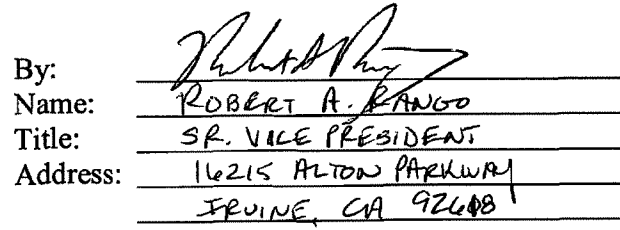 By: Robert A. Rango
Name: ROBERT A. RANGO
Title: SR. VICE PRESIDENT
Address: 16215 ALTON PARKWAY
IRVINE, CA 92618